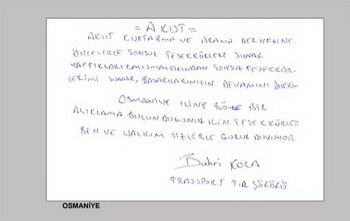 = AKUT =
AKUT KURTARMA VE ARAMA DERNEĞİNE
ÖNCELİKLE SONSUZ TEŞEKKÜRLER SUNAR
YAPTIKLARI ÇALIŞMALARINDAN SONSUZ TEŞEKKÜR-
LERİMİ SUNAR, BAŞARILARINIZIN DEVAMINI DİLERİM
OSMANİYE İLİNE BÖYLE BİR
AÇIKLAMA BULUNDUĞUNUZ İÇİN TEŞEKKÜRLER
BEN VE HALKIM SİZLERLE GURUR DUYUYOR
Bahri KOCA
TRANSPORT TIR ŞÖFÖRÜ
OSMANİYE